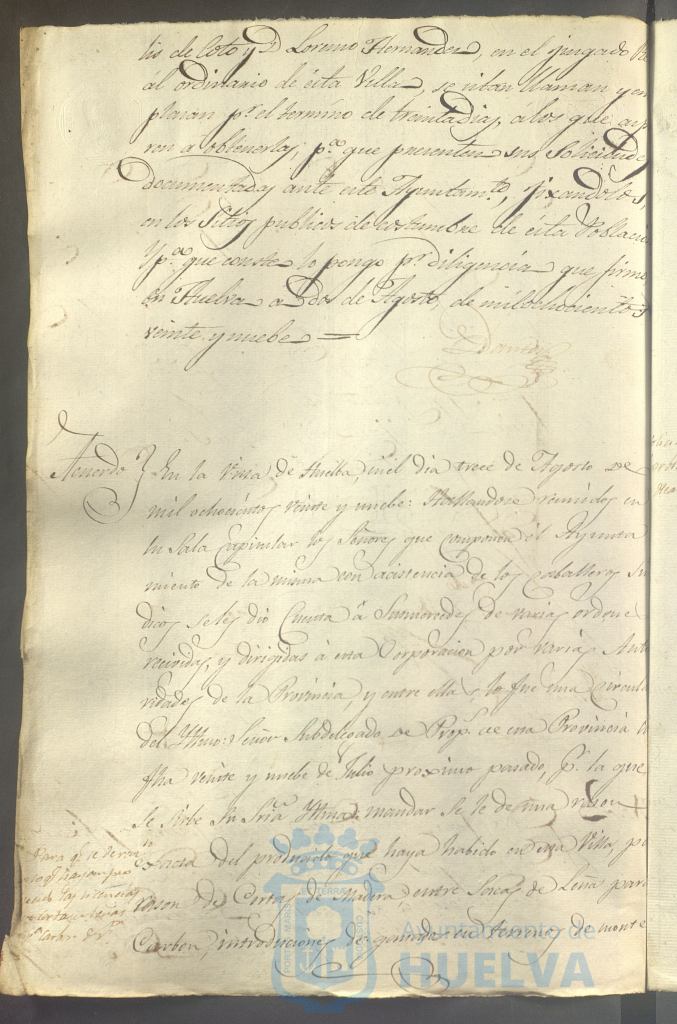 tis de Coto y Dn Lorenzo Hernandez, en el juzgado Re
al ordinario de ésta Villa, se citan llaman y em
plazan pr el termino de treinta dias, á los que aspi
ren a obtenerlas, pa que presenten sus Solicitudes
documentadas ante este Ayuntamto, fixandolos,
en los Sitios publicos de costumbre de ésta Poblacio
Y pa que conste lo pongo pr diligencia que firmo
en Huelva a dos de Agosto de mil ochocientos
veinte y nuebe =
Acuerdo
En la Villa de Huelba, en el dia trece de Agosto de
mil ochocientos veinte y nuebe: Hallandose reunidos en
la Sala Capitular los Señores que componen el Ayunta
miento de la misma con acistencia de los Caballeros Sin
dicos se les dio Cuenta á Sus mercedes de varias ordene
recividas, y dirigidas á esta Corporacion por varias Auto
ridades de la Provincia, y entre ellas, lo fue una Circula
del Yltmo: Señor Subdelegado de Props de esta Provincia
fha veinte y nuebe de Julio proximo pasado, pr la que
se sirbe Su Sria Yltma mandar se le dé una razon
exacta del producido que haya habido en esa Villa, po
razon de Cortas de Madera, entre Sacas de Leñas para
Carbon, introduciones de ganados en terrenos de monte
Para qe se
las licencias
PORTUS MARIS
ET TERRAE
CUSTODIA
Ayuntamiento de
HUELVA